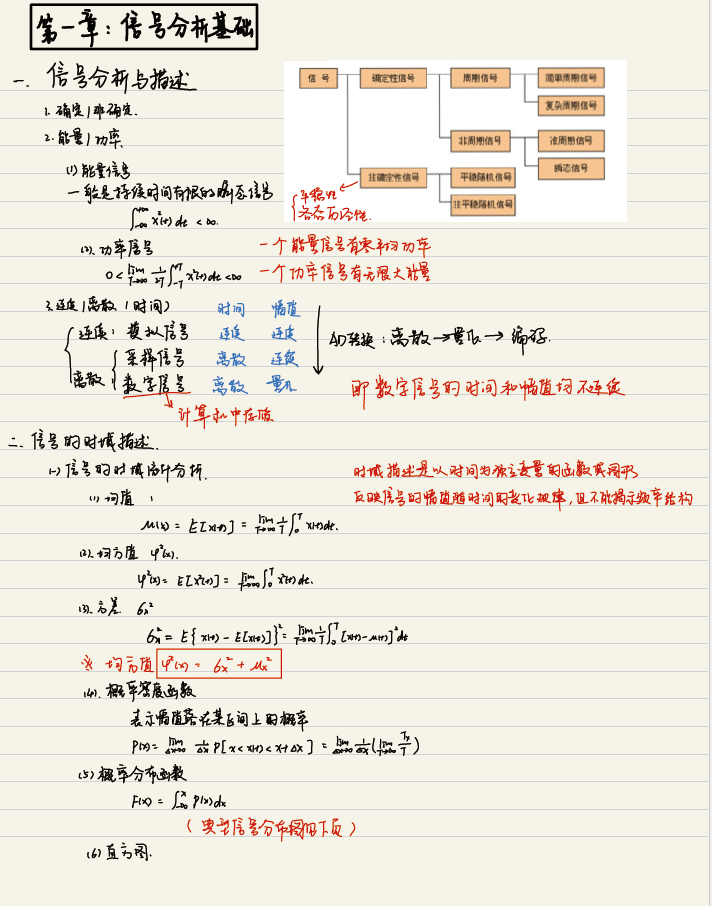 第一章：信号分析基础
一. 信号分析与描述
信号 确定性信号 周期信号 简单周期信号
复杂周期信号
非周期信号 准周期信号
瞬态信号
非确定性信号 平稳随机信号
非平稳随机信号
1. 确定/非确定.
2. 能量/功率
(1) 能量信号
一般是持续时间有限的瞬态信号
平稳性
各态历经性.
∫_{-∞}^{+∞} x²(t) dt < ∞.
(2). 功率信号
一个能量信号有零平均功率
0 < lim_{T→∞} 1/2T ∫_{-T}^{T} x²(t) dt < ∞
一个功率信号有无限大能量
3. 连续/离散 (时间) 时间 幅值
连续: 模拟信号 连续 连续
AD转换: 离散→量化→编码.
离散: 采样信号 离散 连续
数字信号 离散 量化
即数字信号的时间和幅值均不连续
计算机中存储
二. 信号的时域描述.
(一) 信号的时域统计分析.
时域描述是以时间为独立变量的函数或图形
反映信号的幅值随时间的变化规律, 但不能揭示频率结构
(1) 均值 :
μ(x) = E[x(t)] = lim_{T→∞} 1/T ∫_0^T x(t) dt.
(2). 均方值 φ²(x).
φ²(x) = E[x²(t)] = lim_{T→∞} ∫_0^T x²(t) dt.
(3). 方差 6x²
6x² = E{x(t) - E[x(t)]}² = lim_{T→∞} 1/T ∫_0^T [x(t) - μ(t)]² dt
※ 均方值 φ²(x) = 6x² + μx²
(4). 概率密度函数
表示幅值落在某区间上的概率
P(x) = lim_{Δx→0} 1/Δx P[x < x(t) < x+Δx] = lim_{Δx→0} 1/Δx (lim_{T→∞} Tx/T)
(5) 概率分布函数
F(x) = ∫_{-∞}^{x} P(x) dx
(典型信号分布图如下页)
(6) 直方图.